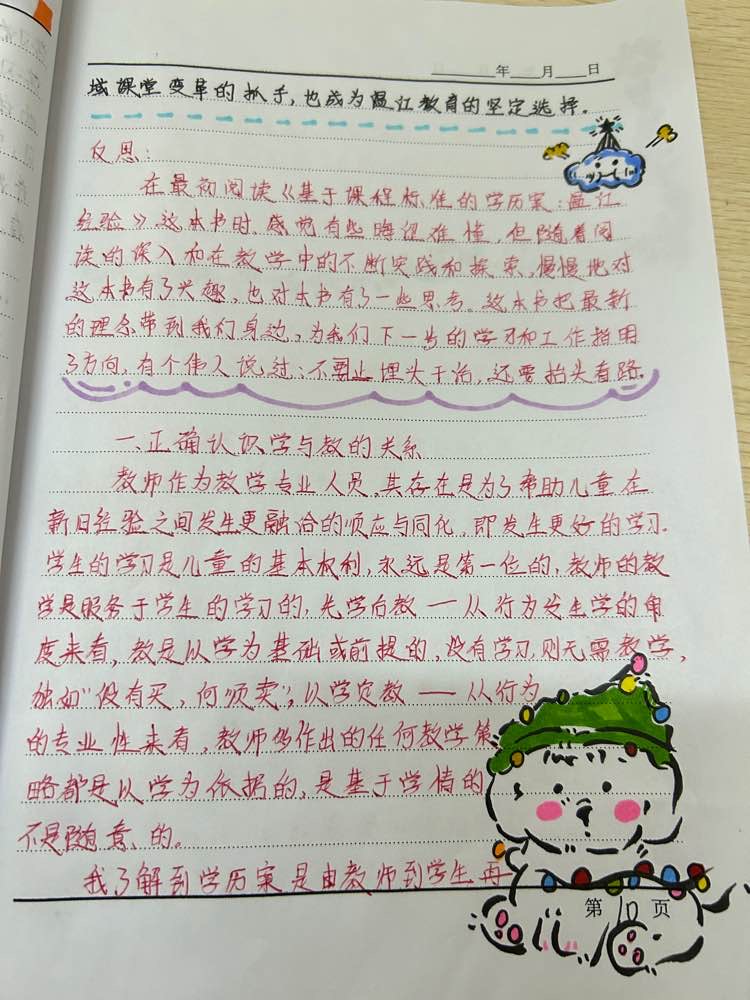 ____年__月__日
域课堂变革的抓手,也成为温江教育的坚定选择.
反思:
在最初阅读《基于课程标准的学历案:温江
经验》这本书时,感觉有些晦涩难懂,但随着阅
读的深入和在教学中的不断实践和探索,慢慢地对
这本书有了兴趣,也对本书有了一些思考。这本书把最新
的理念带到我们身边,为我们下一步的学习和工作指明
了方向,有个伟人说过:不要止埋头干活,还要抬头看路.
一.正确认识学与教的关系
教师作为教学专业人员,其存在是为了帮助儿童在
新旧经验之间发生更融洽的顺应与同化,即发生更好的学习.
学生的学习是儿童的基本权利,永远是第一位的,教师的教
学是服务于学生的学习的,先学后教——从行为发生学的角
度来看,教是以学为基础或前提的,没有学习,则无需教学,
独如"没有买,何须卖";以学定教——从行为
的专业性来看,教师所作出的任何教学策
略都是以学为依据的,是基于学情的
不是随意、的。
我了解到学历案是由教师到学生再
第 页